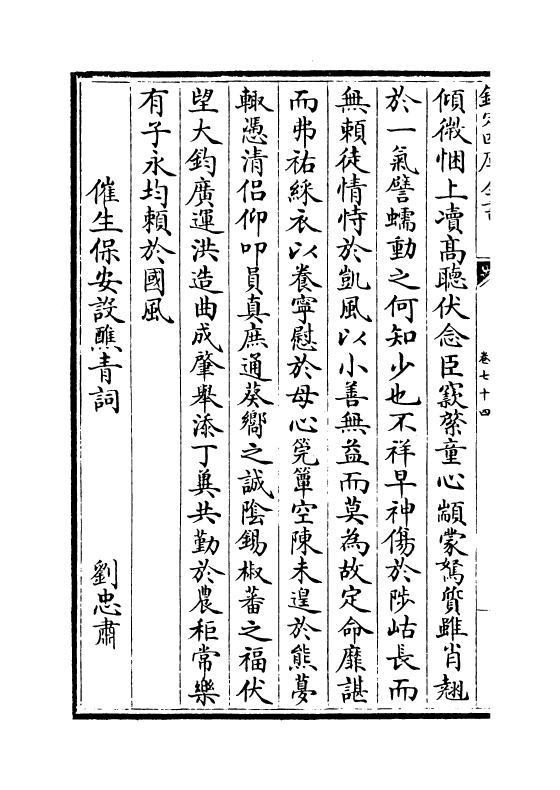 欽定四庫全書
卷七十四
傾微悃上凟髙聰伏念臣窽綮童心顓蒙駑質雖肖翹
於一氣譬蠕動之何知少也不祥早神傷於陟岵長而
無賴徒情恃於凱風以小善無益而莫為故定命靡諶
而弗祐綵衣以養寧慰於母心筦簟空陳未遑於熊夢
輙憑清侣仰叩員真庶通葵嚮之誠陰錫椒蕃之福伏
望大鈞廣運洪造曲成肇舉添丁兾共勤於農秬常樂
有子永均頼於國風
催生保安設醮青詞　劉忠肅